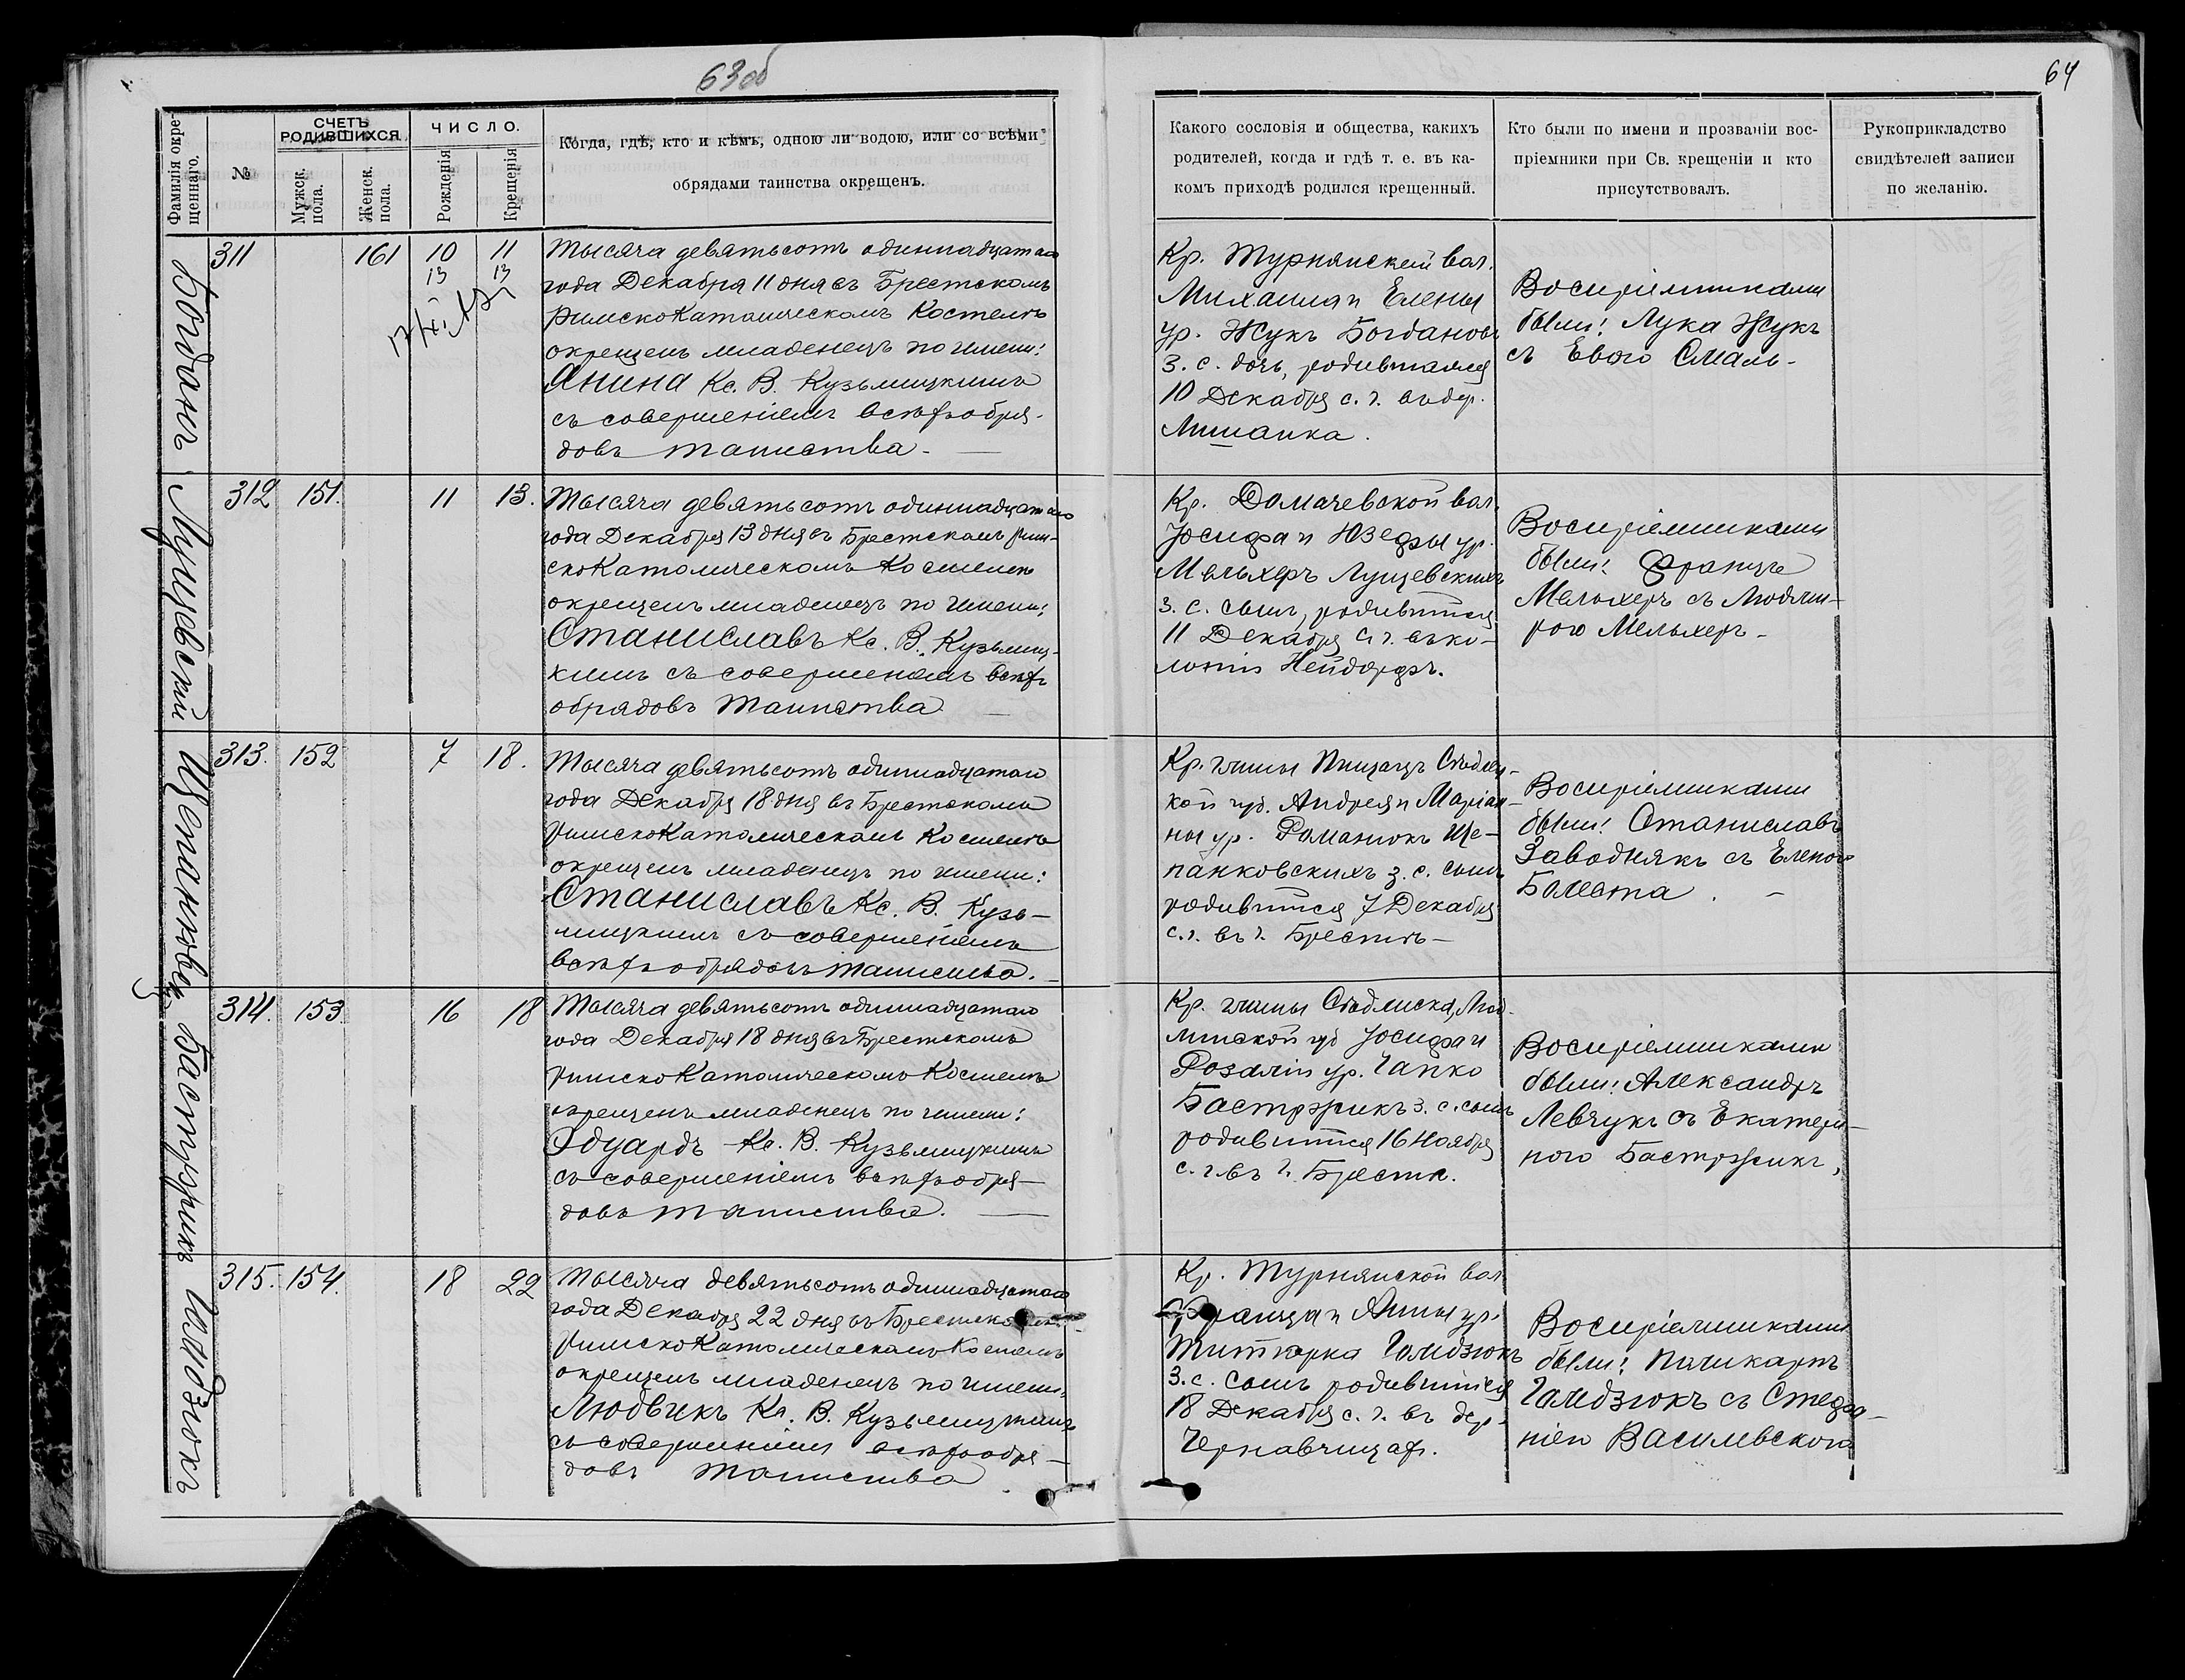 63об
64
Фамилія окре-
щеннаго.
№
СЧЕТЪ
РОДИВШИХСЯ.
Мужск.
пола.
Женск.
пола.
ЧИСЛО.
Рожденія
Крещенія
Когда, гдѣ, кто и кѣмъ, одною ли водою, или со всѣми
обрядами таинства окрещенъ.
Какого сословія и общества, какихъ
родителей, когда и гдѣ т. е. въ ка-
комъ приходѣ родился крещенный.
Кто были по имени и прозваніи вос-
пріемники при Св. крещеніи и кто
присутствовалъ.
Рукоприкладство
свидѣтелей записи
по желанію.
Богданъ
311 161 10 11
13 13
Тысяча девятьсотъ одиннадцатаго
года Декабря 11 дня въ Брестскомъ
РимскоКатолическомъ Костелѣ
окрещенъ младенецъ по имени:
Янина Кс. В. Кузьмицкимъ
съ совершеніемъ всѣхъ обря-
довъ таинства.
Кр. Турнянской вол.
Михаила и Елены
ур. Жукъ Богдановъ
з. с. дочь, родившаяся
10 Декабря с. г. въ дер.
Воспріемниками
были: Лука Жукъ
съ Евою Смаль-
Лущевскій
312 151. 11 13.
Тысяча девятьсотъ одиннадцатаго
года Декабря 13 дня въ Брестскомъ Рим-
скоКатолическомъ Костелѣ
окрещенъ младенецъ по имени:
Станиславъ Кс. В. Кузьмиц-
кимъ съ совершеніемъ всѣхъ
обрядовъ Таинства
Кр. Домачевской вол.
Іосифа и Юзефы ур.
Мельхеръ Лущевскихъ
з. с. сынъ, родившійся
11 Декабря с. г. въ ко-
лоніи Нейдорфъ.
Воспріемниками
были: Францъ
Мельхеръ съ Людми-
рою Мельхеръ-
Щепанковскій
313. 152 7 18.
Тысяча девятьсотъ одиннадцатаго
года Декабря 18 дня въ Брестскомъ
РимскоКатолическомъ Костелѣ
окрещенъ младенецъ по имени:
Станиславъ Кс. В. Кузь-
мицкимъ съ совершеніемъ
всѣхъ обрядовъ таинства.
Кр. гмины Пищацъ Сѣдлец-
кой губ. Андрея и Маріан-
ны ур. Романюкъ Ще-
панковскихъ з. с. сынъ
родившійся 7 Декабря
с. г. въ г. Брестѣ-
Воспріемниками
были: Станиславъ
Заводнякъ съ Еленою
Болеста.
Бастржикъ
314. 153. 16 18
Тысяча девятьсотъ одиннадцатаго
года Декабря 18 дня въ Брестскомъ
РимскоКатолическомъ Костелѣ
окрещенъ младенецъ по имени:
Эдуардъ Кс. В. Кузьмицкимъ
съ совершеніемъ всѣхъ обря-
довъ таинства.
Кр. гмины Сѣдлиска, Люб-
линской губ Іосифа и
Розаліи ур. Чапко
Бастржикъ з. с. сынъ
родившійся 16 Ноября
с. г. въ г. Брестѣ.
Воспріемниками
были: Александръ
Левчукъ съ Екатери-
ною Бастржикъ,
Гамдзюкъ
315. 154. 18 22
Тысяча девятьсотъ одиннадцатаго
года Декабря 22 дня въ Брестскомъ
РимскоКатолическомъ Костелѣ
окрещенъ младенецъ по имени:
Людвикъ Кс. В. Кузьмицкимъ
съ совершеніемъ всѣхъ обря-
довъ Таинства
Кр. Турнянской вол.
Франца и Анны ур.
Гамдзюкъ
з. с. сынъ родившійся
18 Декабря с. г. въ дер.
Чернавчицахъ.
Воспріемниками
были:
Гамдзюкъ съ Стефа-
ніею Василевскою